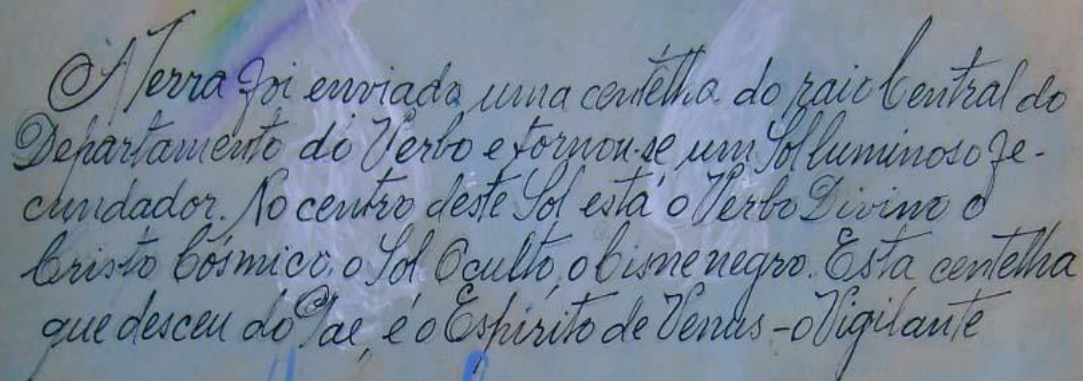 A Terra foi enviada uma centelha do raio Central do
Departamento do Verbo e tornou-se um Sol luminoso fe-
cundador. No centro deste Sol está o Verbo Divino o
Cristo Cósmico, o Sol Oculto, o Cisne negro. Esta centelha
que desceu do Pae, é o Espirito de Venus - o Vigilante